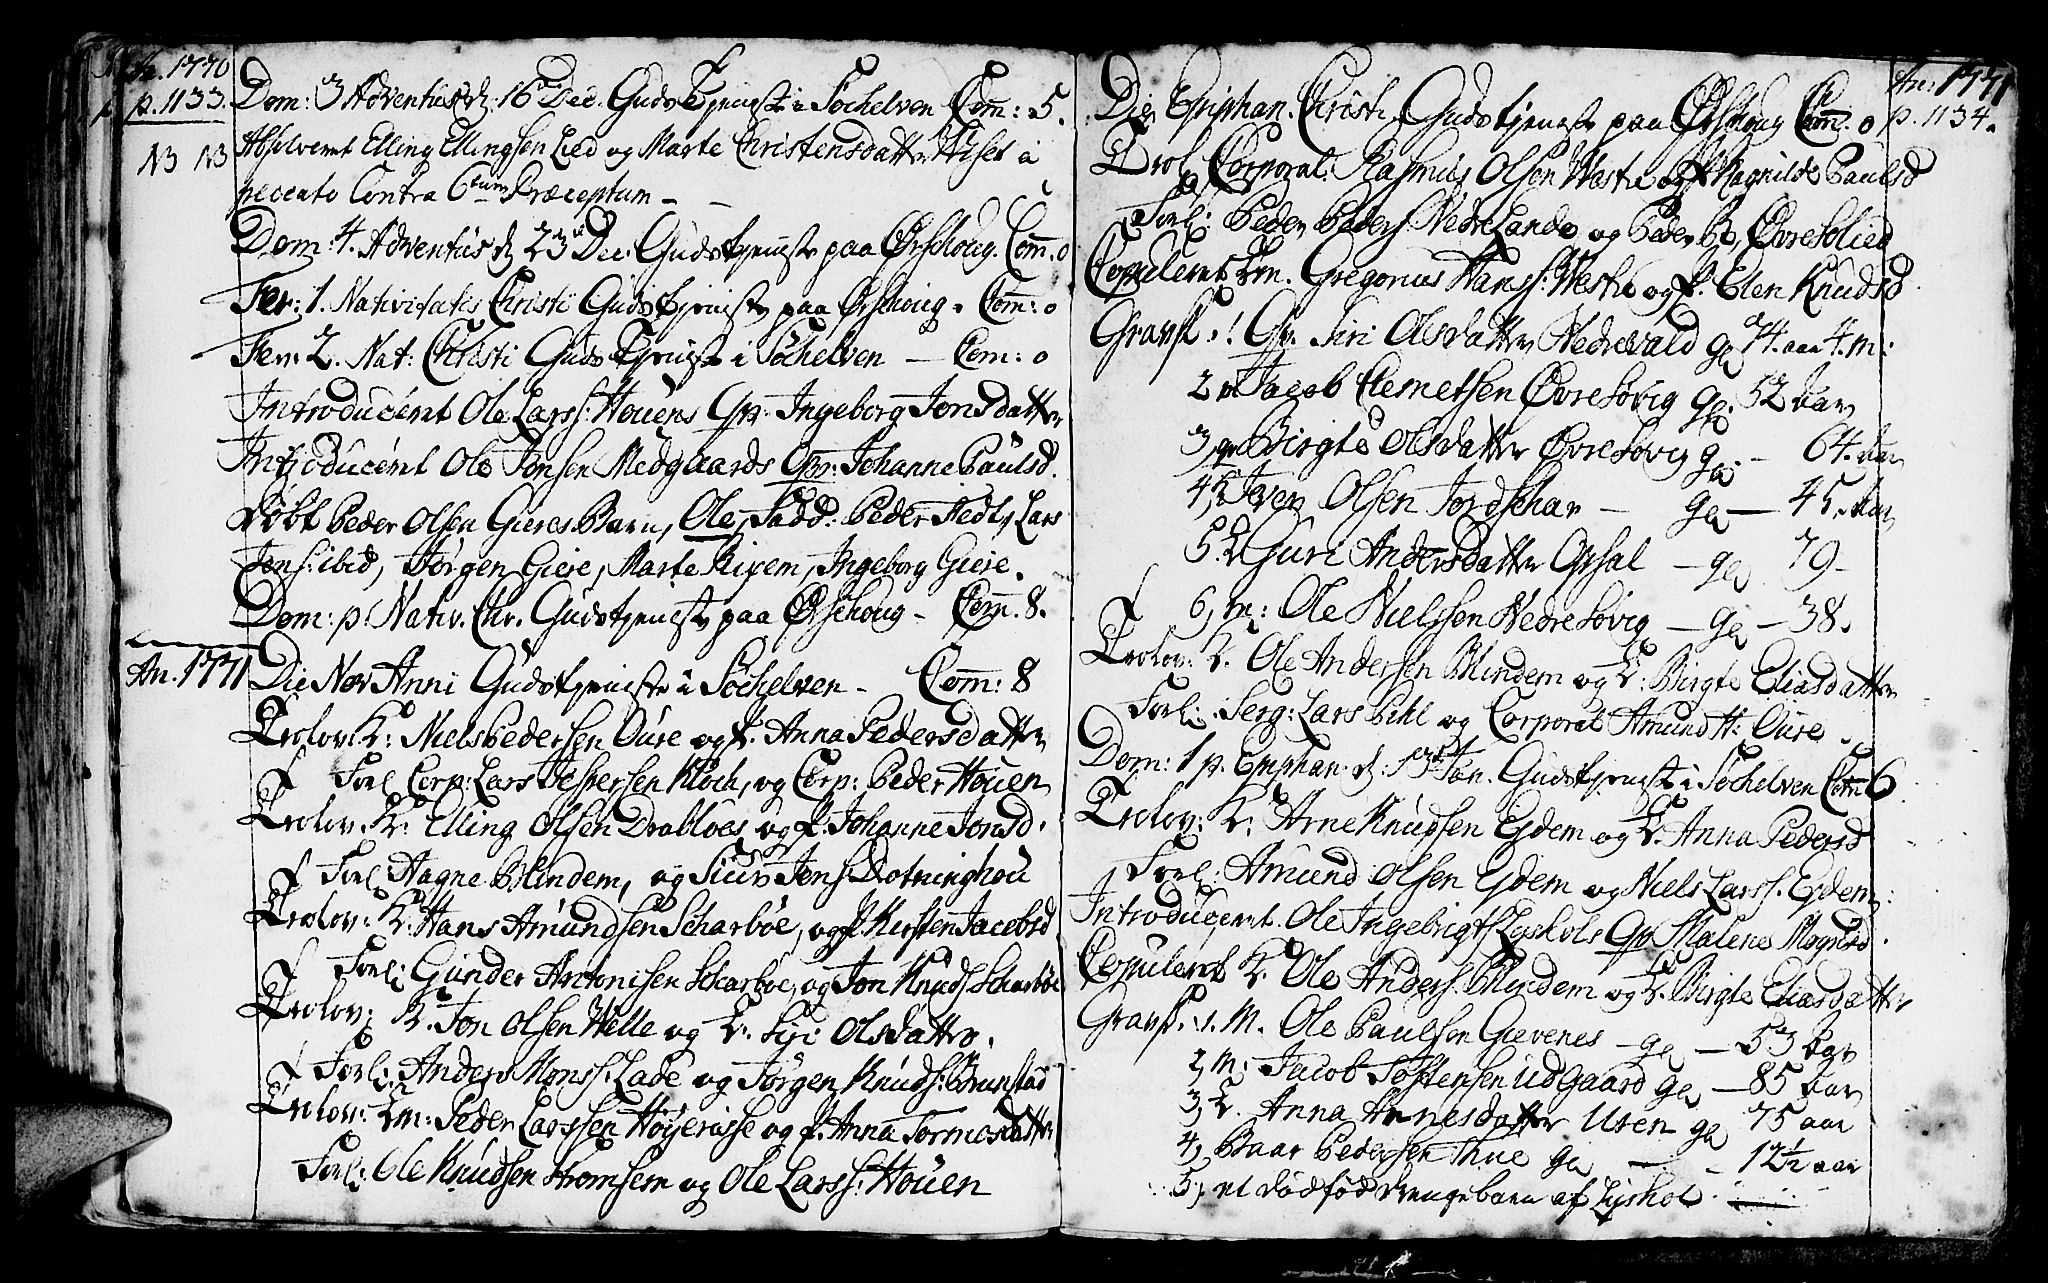 An. 1770
p. 1133.
Dom: 3 Adventus d. 16 Dec. Guds Tjeneste i Søchelven Com: 5.
NB NB
Absolveret Elling Ellingsen Lied og Marte Christensdatter a
peccato Contra 6tum Præceptum
Dom: 4. Adventus d 23 Dec. Gudstjeneste paa Ørschoug. Com. 0
Fer: 1. Nativitatis Christi Gudstjeneste paa Ørschoug. Com: 0
Fer: 2. Nat: Christi Guds Tjeneste i Søchelven — Com: 0
Introduceret Ole Larss: Houens Qv: Ingeborg Jonsdatter
Introduceret Ole Jonsen Medgaards Qv: Johanne Paulsd.
Døbt Peder Olsen Gieres Barn, Ole, Fadd: Peder Fedt, Lars
Jons: ibid, Jørgen Giere, Marte Ripem, Ingeborg Giere.
Dom: p. Nativ. Chr. Gudstjeneste paa Ørschoug — Com. 8.
An. 1771
Die Nov Anni Gudstjeneste i Søchelven — Com: 8
Trolov: K: Niels Pedersen Oure og P. Anna Pedersdatter
Forl Corp: Lars Jespersen Kloch, og Corp: Peder Houen
Trolov. K: Elling Olsen Drabløes og P. Johanne Jonsd.
Forl: Hagne Blindem, og Siur Jens: Dotninghou
Trolov: K. Hans Amundsen Scharbøe, og P. Kersten Jacobsd
Forl: Gunder Antonisen Scharbøe, og Jon Knuds Scharbøe
Trolov: K. Jon Olsen Welle og K: Siri Olsdatter.
Forl: Anders Monss: Lade og Jørgen Knuds: Brunstad
Trolov: Em: Peder Larssen Høyerasse og P. Anna Tormosdatter
Forl: Ole Knudsen Stromsem og Ole Larss: Houen
An: 1771
p. 1134.
Die Epiphan. Christi Gudstjeneste paa Ørschoug Com. 0
Trol Corporal Rasmus Olsen Westre og P Ragnilde Paulsd
Forl: Peder Peders Nedre Lande og Peder Øvre Solied
Copuleret Em. Gregorius Hanss: Westre og P. Elen Knudsd
Grafs. 1 Qv. Siri Olsdatter Nedrevald ge 74. aar 4. m:
2 Jacob Clemetsen Øvre Søvig ge. 52 aar
3, Birgte Olsdatter Øvre Søvig ge. — 64. aar
4, Iver Olsen Jordschar — ge — 45. aar
5. Guri Andersdatter Grsal — ge 79 —
6, m: Ole Nielssen Nedre Søvig — ge — 38.
Trolov: K. Ole Andersen Blindem og K: Birgte Eliasdatter
Forl: Serg: Lars Pihl og Corporal Amund H: Oure
Dom: 1 p. Epiphan. d: 13 Jan. Gudstjeneste i Søchelven Com 6
Trolov: K. Arne Knudsen Eydem og K. Anna Pedersd
Forl: Amund Olsen Eydem og Niels Larss: Eydem:
Introduceret Ole Ingebrigts Lyshols Qv Malene Mognsd.
Copuleret K. Ole Anders: Blindem og K. Birgte Eliasdatter
Grafs. 1. M. Ole Paulsen Gievenes — ge — 53 aar
2, m: Jacob Tostensen Udgaard ge — 85 aar
3, K. Anna Arnesdatter Uren ge 75 aar
4, Baar Pedersen Thue ge — — 12½ aar
5, et dødfød drengebarn af Lyshol